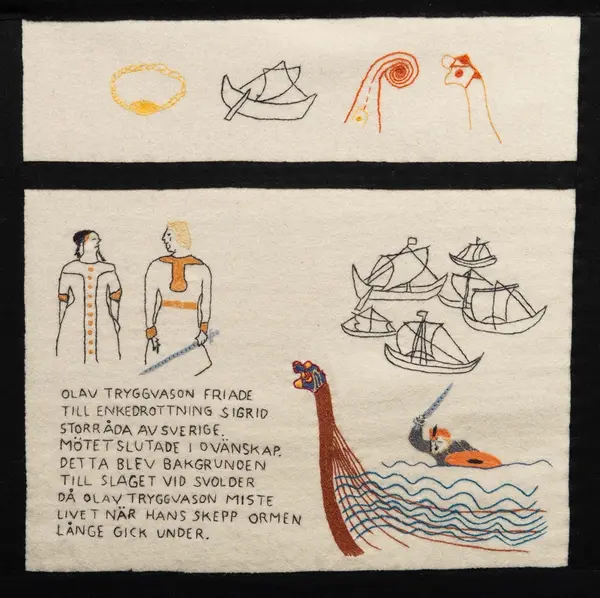 OLAV TRYGGVASON FRIADE
TILL ENKEDROTTNING SIGRID
STORRÅDA AV SVERIGE.
MÖTET SLUTADE I OVÄNSKAP.
DETTA BLEV BAKGRUNDEN
TILL SLAGET VID SVOLDER
DÅ OLAV TRYGGVASON MISTE
LIVET NÄR HANS SKEPP ORMEN
LÅNGE GICK UNDER.